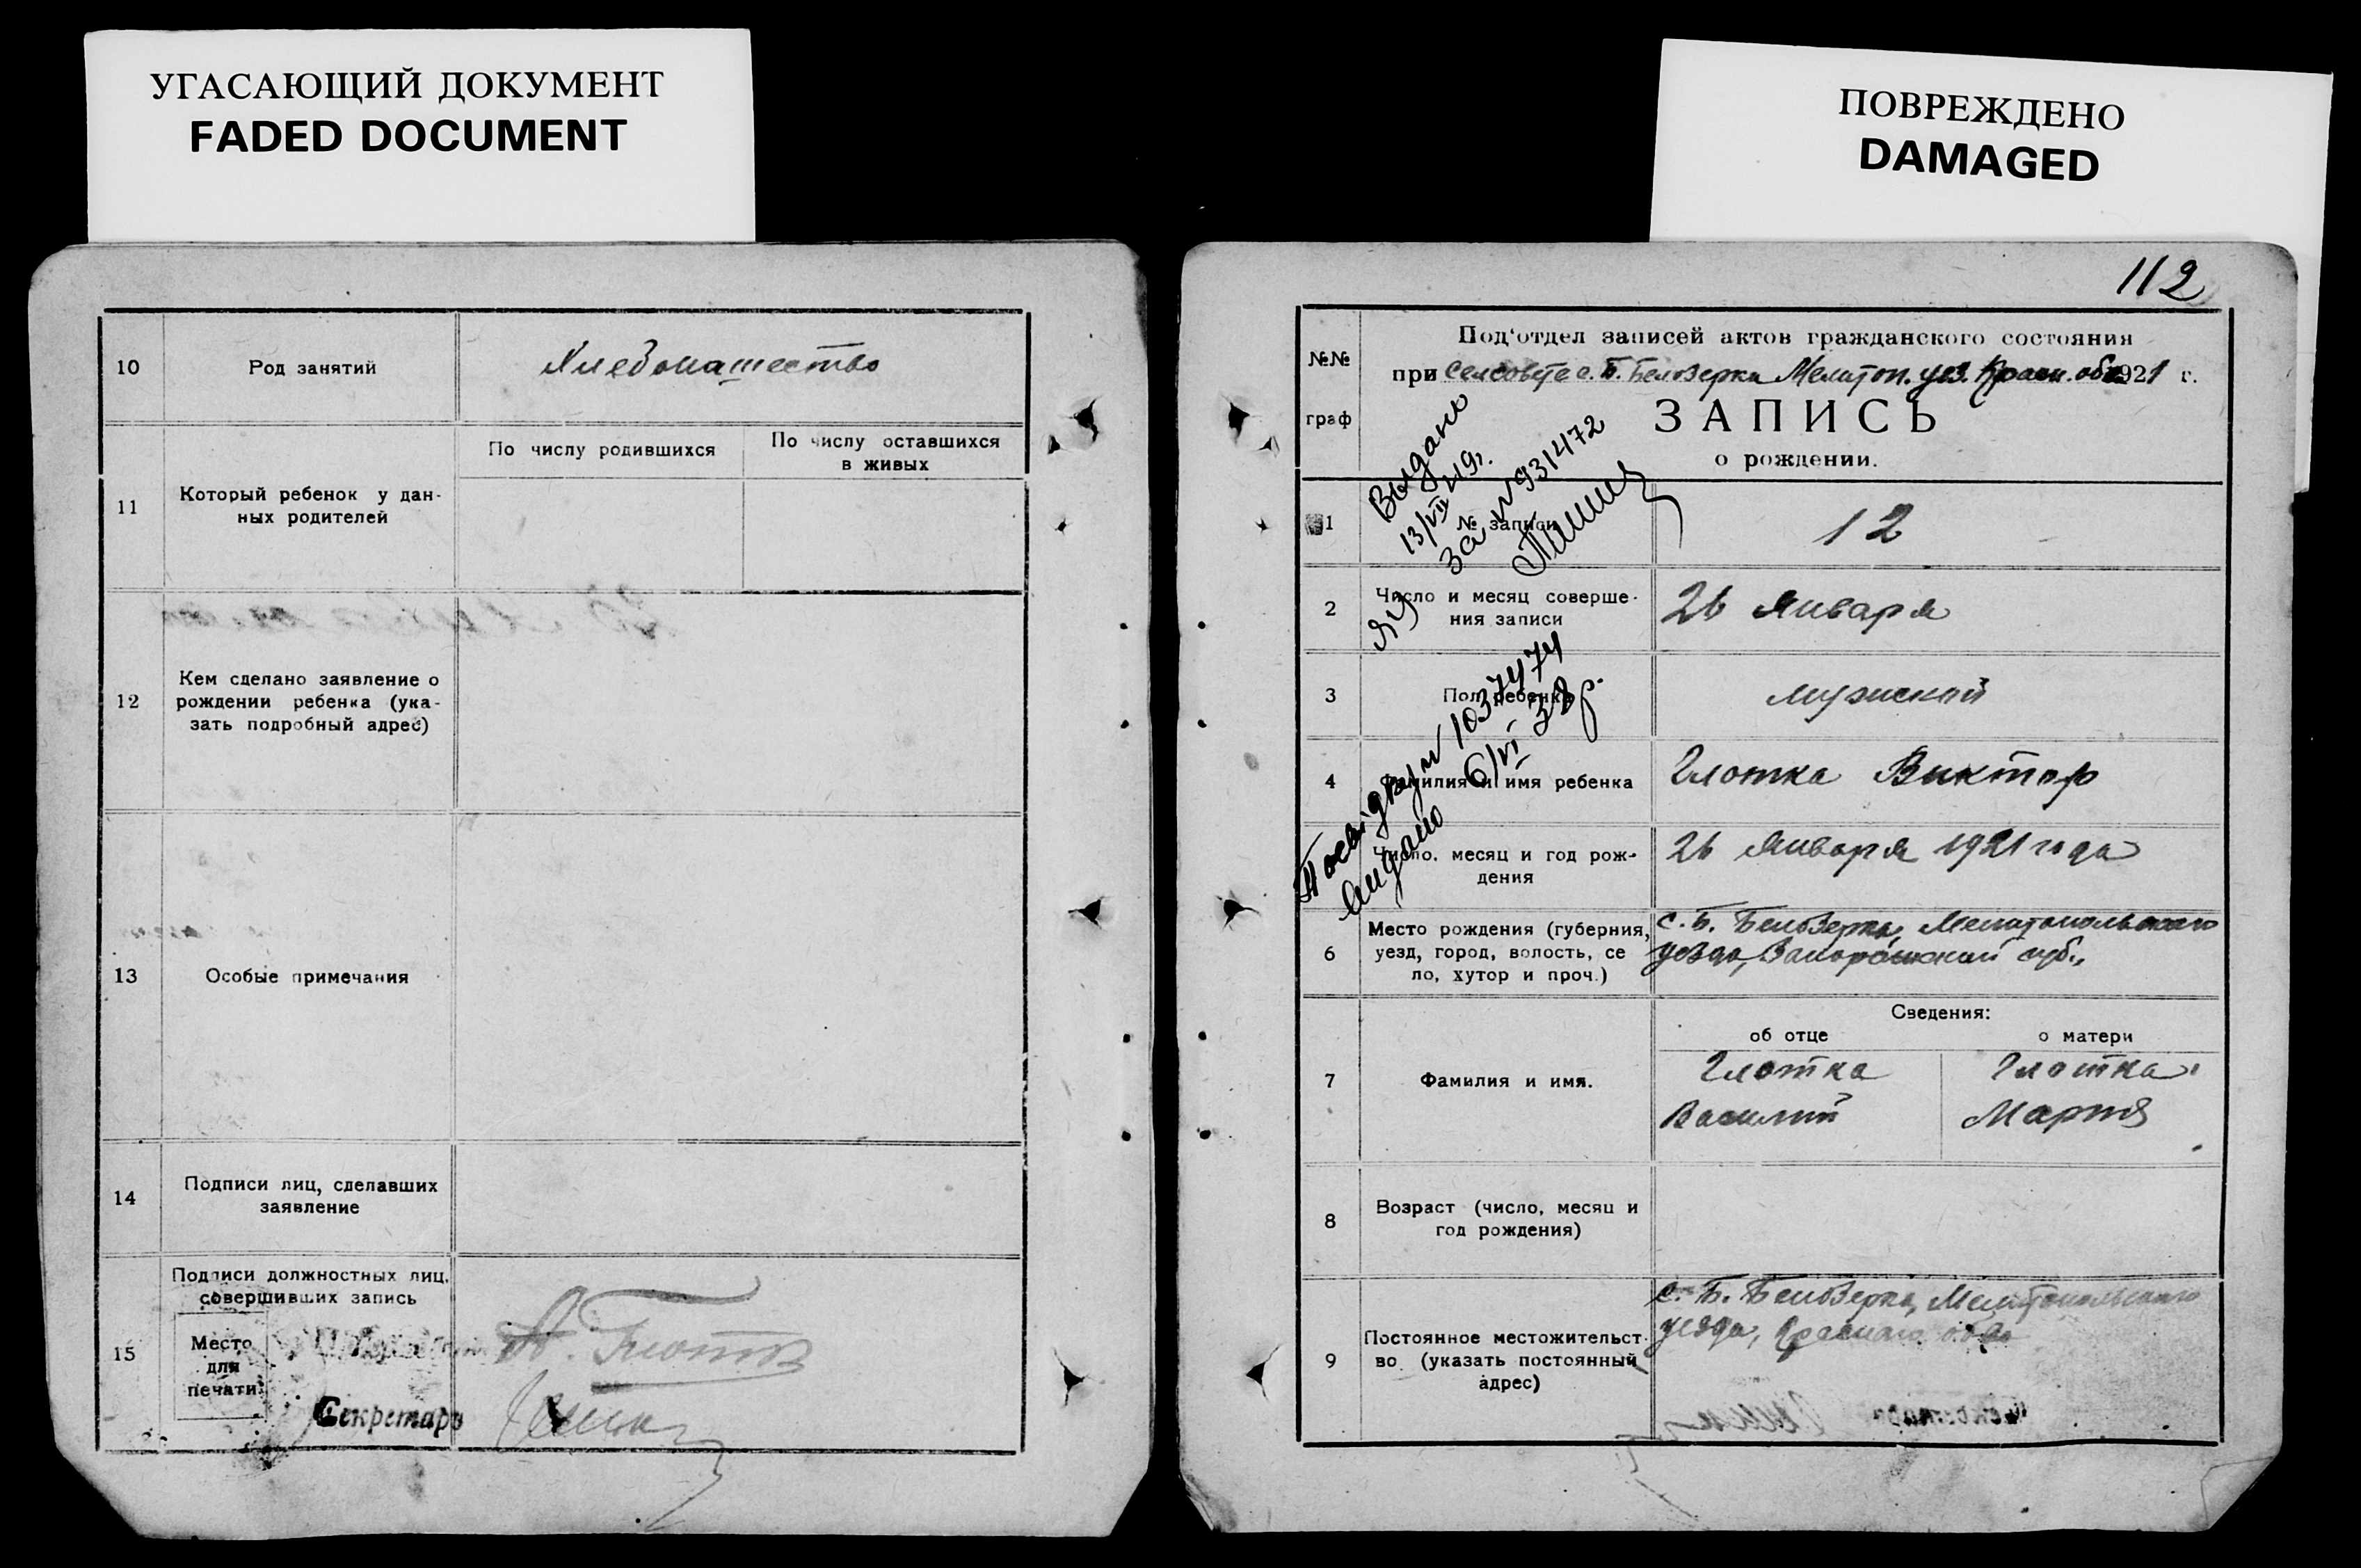 УГАСАЮЩИЙ ДОКУМЕНТ
FADED DOCUMENT
10
Род занятий
Хлебопашество
11
Который ребенок у дан-
ных родителей
По числу родившихся
По числу оставшихся
в живых
12
Кем сделано заявление о
рождении ребенка (ука-
зать подробный адрес)
13
Особые примечания
14
Подписи лиц, сделавших
заявление
15
Подписи должностных лиц,
совершивших запись
Место
для
печати
Секретарь
ПОВРЕЖДЕНО
DAMAGED
112
№№
граф
Под'отдел записей актов гражданского состояния
при Селсовете с. Б. Белозерки Мелитоп. уез. 1921 г.
ЗАПИСЬ
о рождении.
Выдано
13/VII 49г.
за № 931472
1
№ записи
12
2
Число и месяц соверше-
ния записи
26 Января
3
Пол ребенка
мужской
№ 1037474
6/VI 38р.
4
Фамилия и имя ребенка
Глотка Виктор
5
Число, месяц и год рож-
дения
26 Января 1921 года
6
Место рождения (губерния,
уезд, город, волость, се
ло, хутор и проч.)
с. Б. Белозерка, Мелитопольского
уезда, Запорожской губ.,
Сведения:
об отце
о матери
7
Фамилия и имя.
Глотка
Василий
Глотка
Мария
8
Возраст (число, месяц и
год рождения)
9
Постоянное местожительст-
во (указать постоянный
адрес)
с. Б. Белозерка, Мелитопольского
уезда,